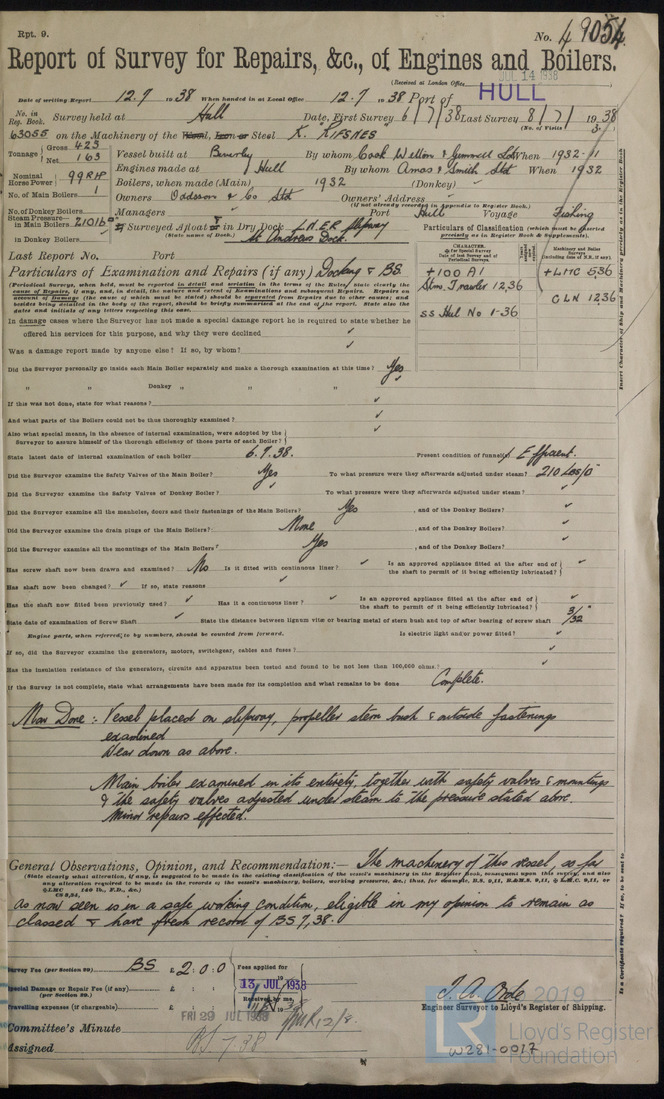 Rpt. 9.
No. 49054
Report of Survey for Repairs, &c., of Engines and Boilers.
(Received at London Office JUL 14 1938)
Date of writing Report 12.7 1938 When handed in at Local Office 12.7 1938 Port of HULL
No. in Reg. Book. Survey held at Hull Date, First Survey 6/7/38 Last Survey 8/7/1938
(No. of Visits 3.)
63055 on the Machinery of the Wood, Iron or Steel K. KIFSNES
Tonnage { Gross 423 Net 163
Vessel built at Beverley By whom Cook Welton & Gemmell Ltd When 1932-11
Engines made at Hull By whom Amos & Smith Ltd When 1932
Nominal Horse Power 99 RHP
Boilers, when made (Main) 1932 (Donkey) ✓
No. of Main Boilers 1
Owners Oddsson & Co Ltd Owners' Address
(If not already recorded in Appendix to Register Book.)
No. of Donkey Boilers
Managers Port Hull Voyage Fishing
Steam Pressure in Main Boilers 210 lb
in Donkey Boilers ✓
If Surveyed Afloat or in Dry Dock L.N.E.R. Slipway
(State name of Dock.) St Andrews Dock.
Particulars of Classification (which must be inserted precisely as in Register Book & Supplements).
CHARACTER.
Machinery and Boiler Surveys
+100 A1
Stm. Trawler 12,36
ss Hul No 1-36
+LMC 5,36
CLN 12,36
Last Report No. Port
Particulars of Examination and Repairs (if any) Docking & BS.
In damage cases where the Surveyor has not made a special damage report he is required to state whether he
offered his services for this purpose, and why they were declined ✓
Was a damage report made by anyone else? If so, by whom? ✓
Did the Surveyor personally go inside each Main Boiler separately and make a thorough examination at this time? Yes
„ „ Donkey „ „ „ ✓
If this was not done, state for what reasons? ✓
And what parts of the Boilers could not be thoroughly examined? ✓
Also what special means, in the absence of internal examination, were adopted by the
Surveyor to assure himself of the thorough efficiency of those parts of each Boiler? ✓
State latest date of internal examination of each boiler 6.7.38. Present condition of funnel(s) Efficient.
Did the Surveyor examine the Safety Valves of the Main Boiler? Yes To what pressure were they afterwards adjusted under steam? 210 Lbs/□"
Did the Surveyor examine the Safety Valves of Donkey Boiler? ✓ To what pressure were they afterwards adjusted under steam? ✓
Did the Surveyor examine all the manholes, doors and their fastenings of the Main Boilers? Yes, and of the Donkey Boilers? ✓
Did the Surveyor examine the drain plugs of the Main Boilers? None, and of the Donkey Boilers? ✓
Did the Surveyor examine all the mountings of the Main Boilers? Yes, and of the Donkey Boilers? ✓
Has screw shaft now been drawn and examined? No Is it fitted with continuous liner? ✓ Is an approved appliance fitted at the after end of the shaft to permit of it being efficiently lubricated? ✓
Has shaft now been changed? ✓ If so, state reasons ✓
Has the shaft now fitted been previously used? ✓ Has it a continuous liner? ✓ Is an approved appliance fitted at the after end of the shaft to permit of it being efficiently lubricated? ✓
State date of examination of Screw Shaft ✓ State the distance between lignum vitæ or bearing metal of stern bush and top of after bearing of screw shaft 3/32"
Engine parts, when referred to by numbers, should be counted from forward. Is electric light and/or power fitted? ✓
If so, did the Surveyor examine the generators, motors, switchgear, cables and fuses? ✓
Has the insulation resistance of the generators, circuits and apparatus been tested and found to be not less than 100,000 ohms? ✓
If the Survey is not complete, state what arrangements have been made for its completion and what remains to be done Complete.
Now Done :- Vessel placed on slipway, propeller stern bush & outside fastenings
examined
Wear down as above.
Main boiler examined in its entirety, together with safety valves & mountings
& the safety valves adjusted under steam to the pressure stated above.
Minor repairs effected.
General Observations, Opinion, and Recommendation:— The machinery of this vessel, so far
(State clearly what alteration, if any, is suggested to be made in the existing classification of the vessel's machinery in the Register Book, consequent upon this survey, and also
any alteration required to be made in the records of the vessel's machinery, boilers, working pressures, &c.;
as now seen is in a safe working condition, eligible in my opinion to remain as
classed & have fresh record of BS 7,38.
Survey Fee (per Section 29) BS £ 2 : 0 : 0
Special Damage or Repair Fee (if any) (per Section 29.) £ : :
Travelling expenses (if chargeable) £ : :
Fees applied for
13 JUL 1938
Received by me,
Engineer Surveyor to Lloyd's Register of Shipping.
Committee's Minute FRI 29 JUL 1938
Assigned BS 7.38
2019
Lloyd's Register
Foundation
W281-0017